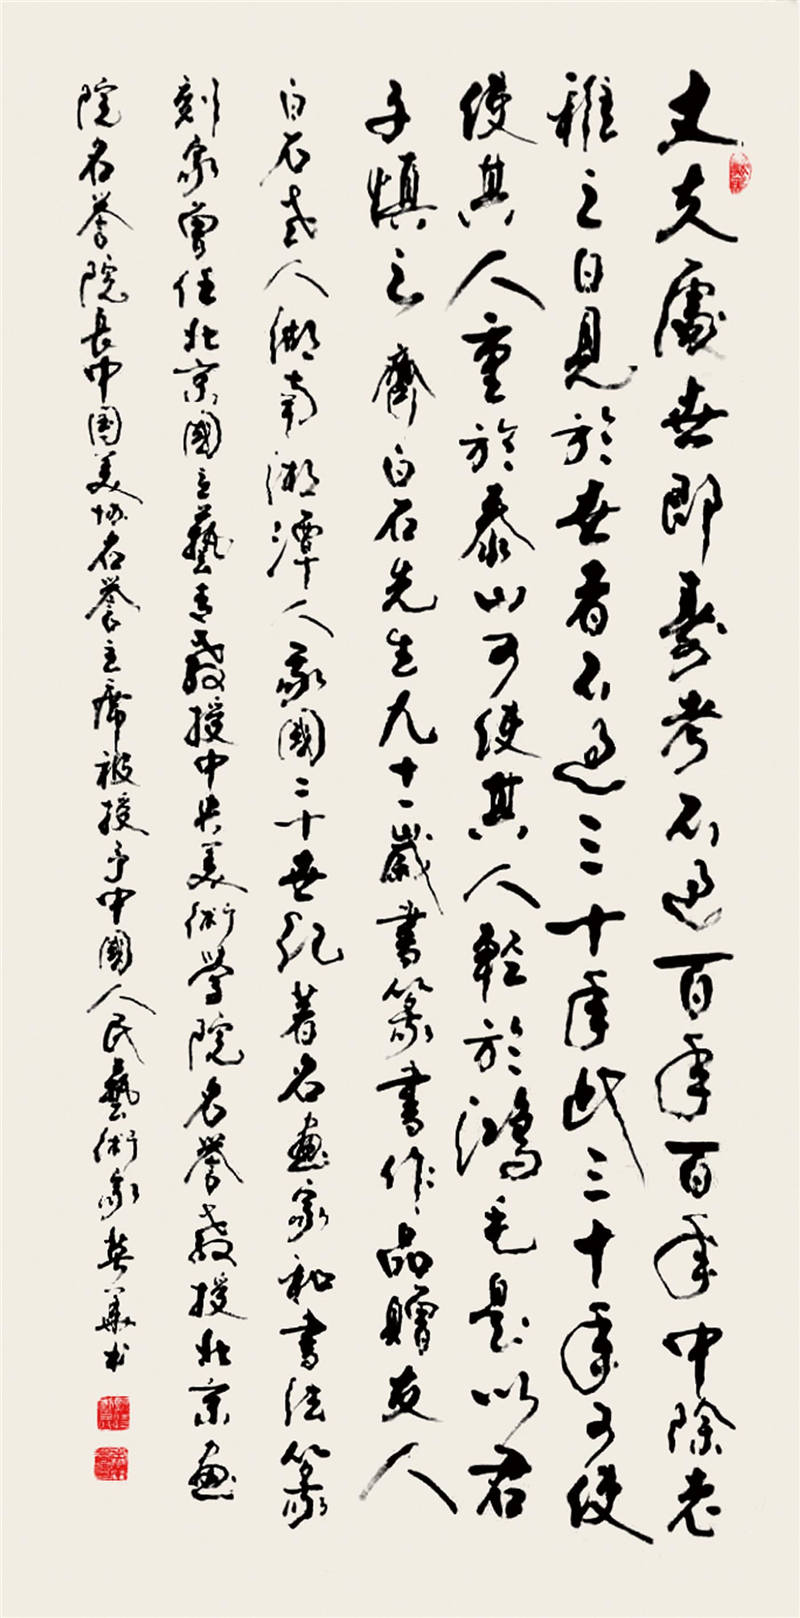 丈夫處世即壽考不過百年百年中除老
稚之日見於世者不過三十年此三十年可使
使其人重於泰山可使其人輕於鴻毛是以君
子慎之 齊白石先生九十一歲書篆書作品贈友人
白石老人湖南湘潭人我國二十世紀著名畫家和書法篆
刻家曾任北京國立藝專教授中央美術學院名譽教授北京畫
院名譽院長中国美协名誉主席被授予中國人民藝術家